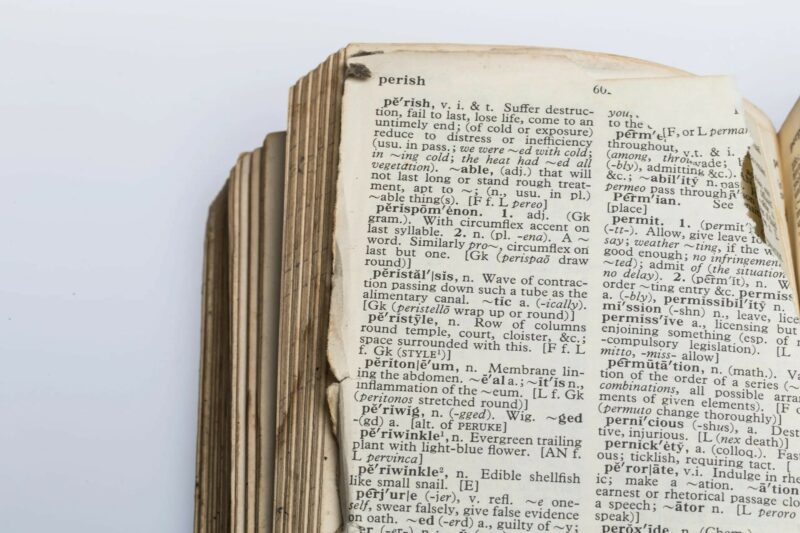 perish
66
pĕ′rish, v. i. & t. Suffer destruc-
tion, fail to last, lose life, come to an
untimely end; (of cold or exposure)
reduce to distress or inefficiency
(usu. in pass.; we were ~ed with cold;
in ~ing cold; the heat had ~ed all
vegetation). ~able, (adj.) that will
not last long or stand rough treat-
ment, apt to ~; (n., usu. in pl.)
~able thing(s). [F f. L pereo]
pĕrispŏm′ĕnon. 1. adj. (Gk
gram.). With circumflex accent on
last syllable. 2. n. (pl. -ena). A ~
word. Similarly pro~, circumflex on
last but one. [Gk (perispaō draw
round)]
pĕristăl′|sis, n. Wave of contrac-
tion passing down such a tube as the
alimentary canal. ~tic a. (-ically).
[Gk (peristellō wrap up or round)]
pĕ′ristȳle, n. Row of columns
round temple, court, cloister, &c.;
space surrounded with this. [F f. L
f. Gk (STYLE¹)]
pĕriton|ē′um, n. Membrane lin-
ing the abdomen. ~ē′al a.; ~īt′is n.,
inflammation of the ~eum. [L f. Gk
(peritonos stretched round)]
pĕ′riwig, n. (-gged). Wig. ~ged
(-gd) a. [alt. of PERUKE]
pĕ′riwinkle¹, n. Evergreen trailing
plant with light-blue flower. [AN f.
L pervinca]
pĕ′riwinkle², n. Edible shellfish
like small snail. [E]
pĕrj′ur|e (-jer), v. refl. ~e one-
self, swear falsely, give false evidence
on oath. ~ed (-erd) a., guilty of ~y;
you,
to the [F, or L
throughout, v.t. & i.
(among,
(-bly), admitting &c.).
&c.; ~abil′ity n.
permeo pass through
Pĕrm′ian. See
[place]
permit. 1. (permit′)
(-tt-). Allow, give leave
say; weather ~ting, if the
good enough; no infringement
~ted); admit of (the situation
no delay). 2. (pĕrm′ĭt), n.
order ~ting entry &c. permiss
a. (-bly), permissibil′ity n.
mi′ssion (-shn) n., leave,
permiss′ive a., licensing but
enjoining something (esp. of
-compulsory legislation). [L
mitto, -miss- allow]
pĕrmūtā′tion, n. (math.).
tion of the order of a series (~
combinations, all possible
ments of given elements). [F
(permuto change thoroughly)]
perni′cious (-shus), a.
tive, injurious. [L (nex death)]
pernick′ĕtў, a. (colloq.).
ous; ticklish, requiring tact. [
pĕ′ror|āte, v.i. Indulge in
ic; make a ~ation. ~ā′tion
earnest or rhetorical passage
a speech; ~ātor n. [L peroro
speak)]
perŏx′ide, n.